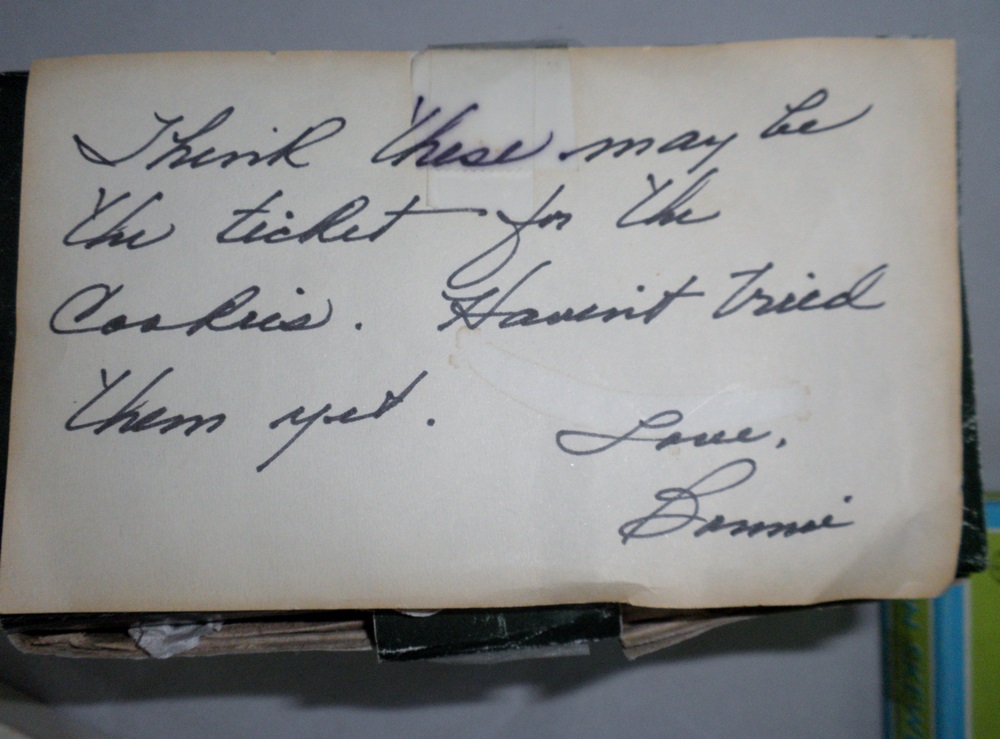 Think these may be
the ticket for the
Cookies. Haven't tried
them yet.
Love,
Bonnie